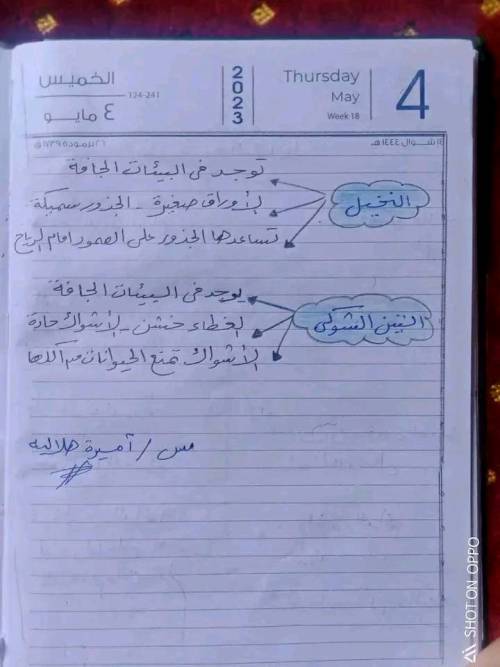 الخميس
124-241
٤ مايو
2023
Thursday
May
Week 18
4
١٤ شوال ١٤٤٤هـ
٢٦ برمودة ١٧٣٩ق
النخيل
توجد فى البيئات الجافة
الأوراق صغيرة - الجذور سميكة
تساعدها الجذور على الصمود امام الرياح
التين الشوكى
يوجد فى البيئات الجافة
الغطاء خشن - الأشواك حادة
الأشواك تمنع الحيوانات من أكلها
مس / أميرة هلاليه
SHOT ON OPPO